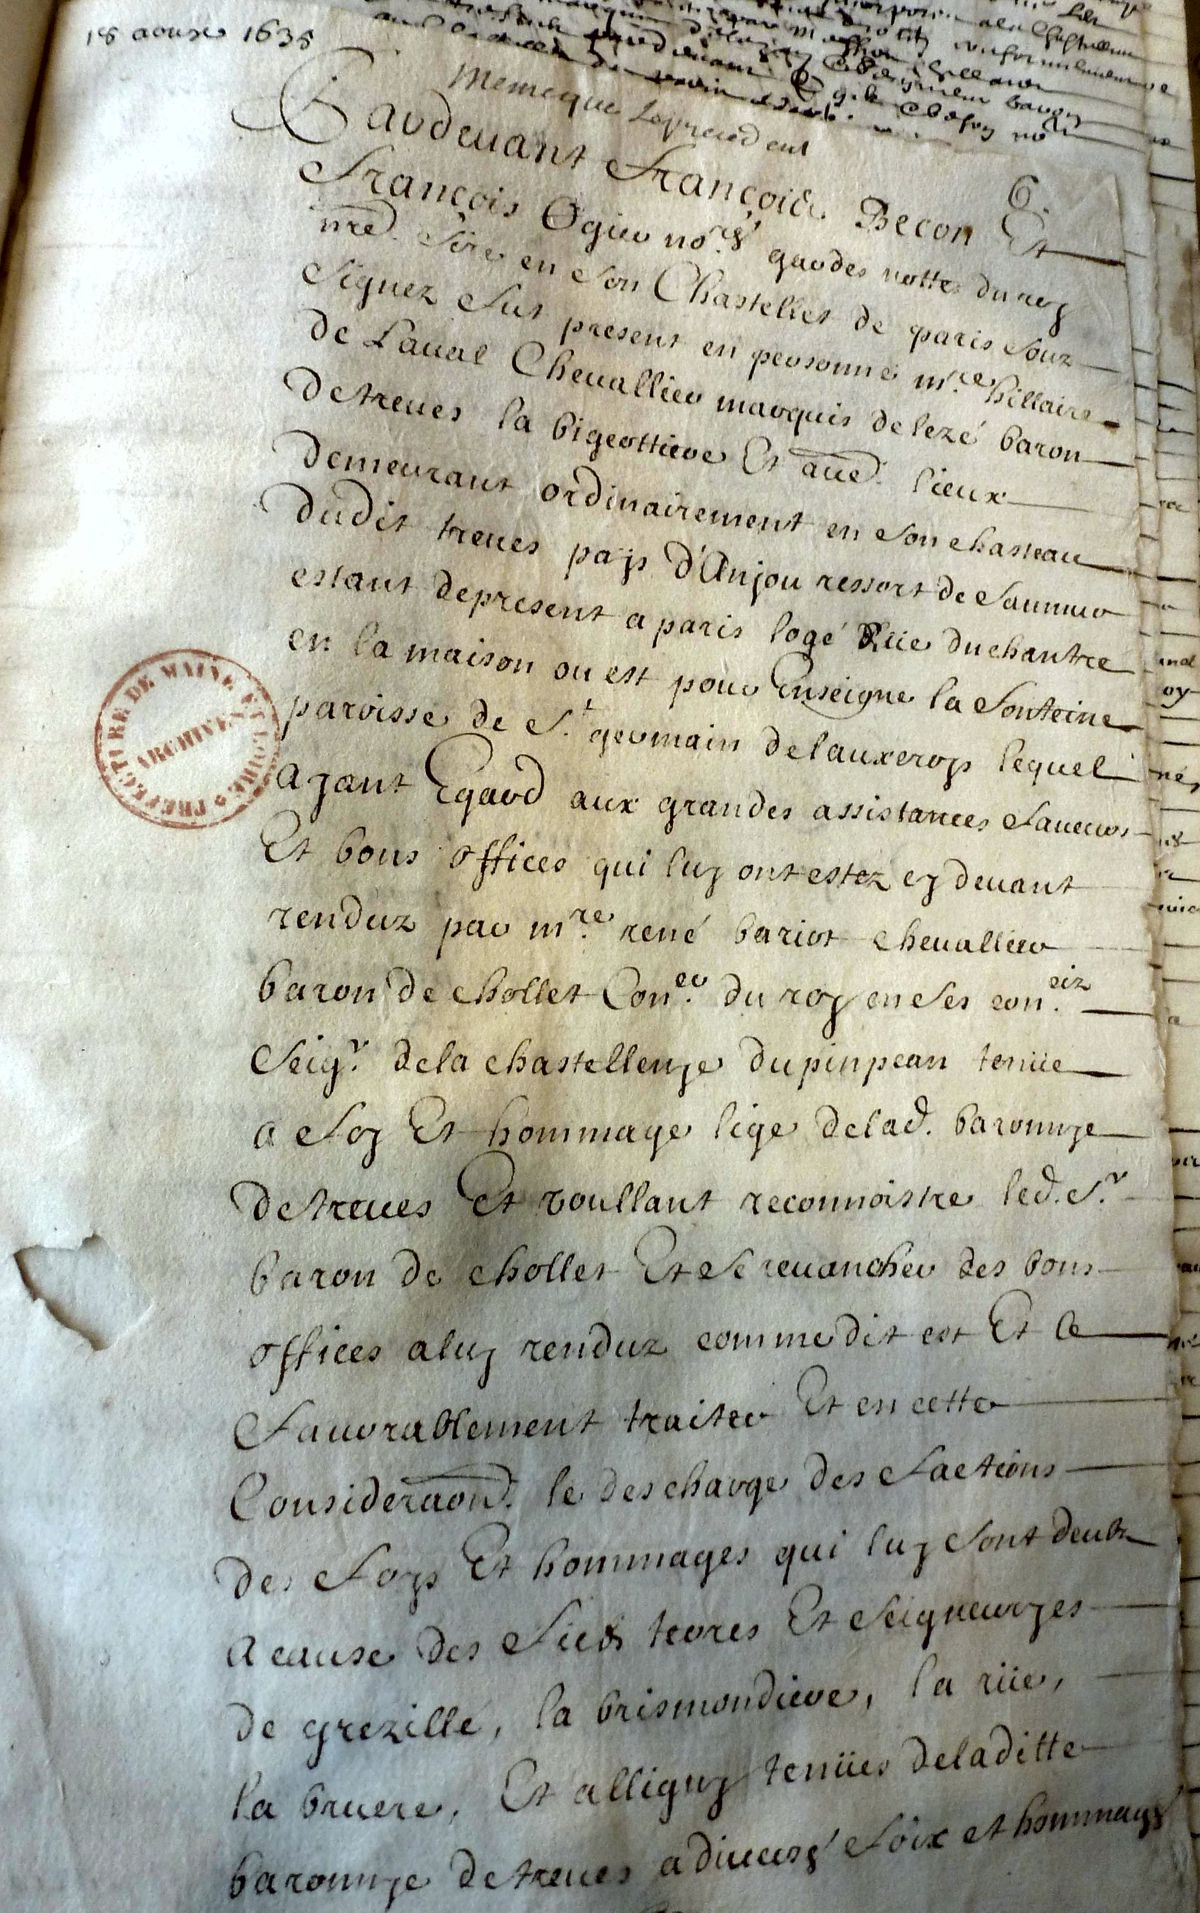 18 aoust 1635
Memeque Leprecedent
6.
Pardevant François Becon Et
François Ogier no.res gardes nottes du roy
nre. Sire en son Chastellet de paris souz
signez fut present en personne m.re hillaire
de Laual Cheuallier marquis de lezé baron
de treues la bigeottiere Et aued. lieux
demeurant ordinairement en son chasteau
dudit treues pays d'Anjou ressort de saumur
estant de present a paris logé Rüe du chantre
en la maison ou est pour Enseigne la fonteine
parroisse de S.t germain de lauxeroys lequel
ayant Egard aux grandes assistances faueurs
Et bons offices qui luy ont estez cy deuant
renduz par m.re rené bariot cheuallier
baron de chollet Con.er du roy en ses con.eiz
Seig.r de la chastellenye du pinpean tenüe
a foy Et hommage lige de lad. baronnye
de treues Et voullant reconnoistre led. S.r
baron de chollet Et se reuancher des bons
offices a luy renduz comme dit est Et le
fauorablement traiter Et en cette
Consideraon. le descharge des factions
des foys Et hommages qui luy sont deubz
a cause des fiefs terres Et seigneuryes
de grezillé, la brismondiere, la rüe,
la bruere, Et alligny tenües de laditte
baronnye de treues a diuers foix et hommages
PREFECTURE DE MAINE ET LOIRE
ARCHIVES